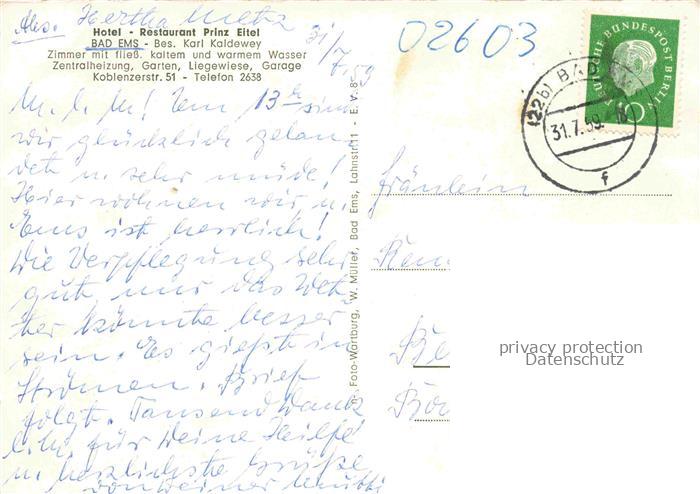 Abs. Hertha Metz
Hotel - Restaurant Prinz Eitel
BAD EMS - Bes. Karl Kaldewey
Zimmer mit fließ. kaltem und warmem Wasser
Zentralheizung, Garten, Liegewiese, Garage
Koblenzerstr. 51 - Telefon 2638
31/7.59
02603
DEUTSCHE BUNDESPOST BERLIN
10
(22b) BAD
31.7.59.-18
f
M. l. M! Um 13h sind
wir glücklich gelan-
det u. sehr müde!
Hier wohnen wir u.
Ems ist herrlich!
Die Verpflegung sehr
gut nur das Wet-
ter könnte besser
sein. Es gießt in
Strömen. Brief
folgt. Tausend Dank
l. M. für Deine Hilfe
u. herzlichste Grüße
von Deiner Mutti
Foto-Wartburg, W. Müller, Bad Ems, Lahnstr. 11 - E. V. 8
Fräulein
privacy protection
Datenschutz